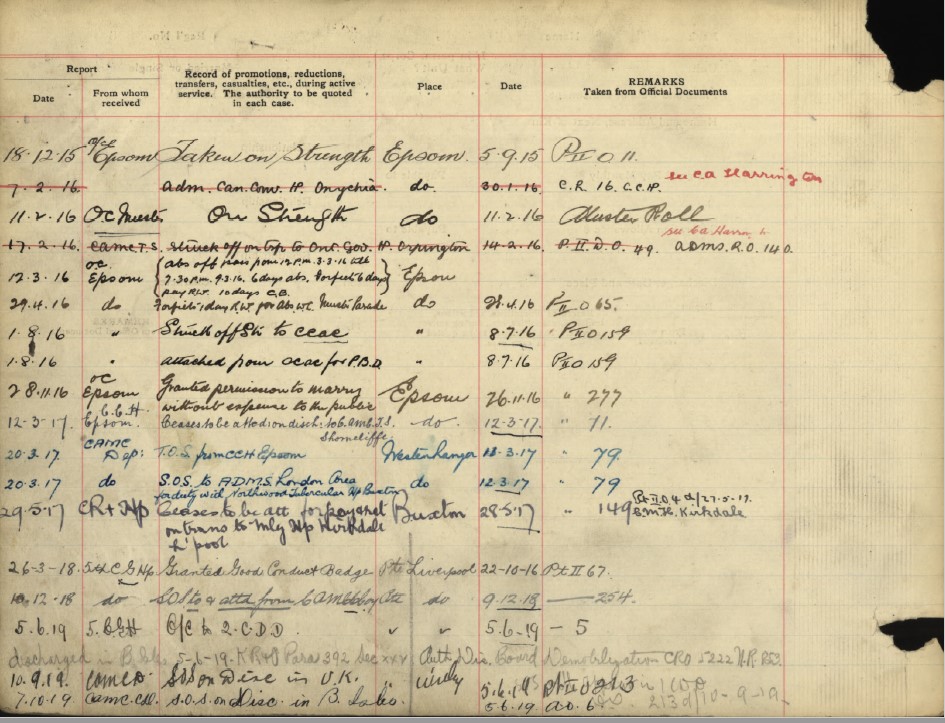 Report
Record of promotions, reductions,
transfers, casualties, etc., during active
service. The authority to be quoted
in each case.
Place
Date
REMARKS
Taken from Official Documents
Date
From whom
received
18.12.15 Epsom Taken on Strength Epsom. 5.9.15 Pt II O 11.
see CA Harrington
7.2.16. Adm. Can. Conv. H. do. 30.1.16. C.R. 16. C.C.H.
11.2.16 O.C. On Strength do 11.2.16 Muster Roll
see Ca
17.2.16. C.A.M.C.T.S. Struck off on to Ont. Gov. H. Orpington 14.2.16. P.II.D.O. 49. A.D.M.S. R.O. 140.
12.3.16 OC Epsom Abs off from 12 P.M. 3.3.16 till
7.30 P.M. 9.3.16. 6 days abs. Forfeits 6 days
pay R.W. 10 days C.B.
29.4.16 do Forfeits 1 day R.W. for Abs Parade do 28.4.16 Pt II O 65.
1.8.16 " Struck off Str to CCAC " 8.7.16 " Pt II O 159
1.8.16 " Attached from CCAC for P.B.D " 8.7.16 Pt II O 159
28.11.16 OC Epsom Granted permission to marry
without expense to the public Epsom 26.11.16 " 277
12-3-17. C.C.H. Epsom. Ceases to be att'd on disch: to C.A.M.C. T.S.
Shorncliffe do. 12-3-17. " 71.
20.3.17. CAMC Dep: T.O.S. from CCH Epsom Westenhanger 12.3.17 " 79.
20.3.17. do S.O.S. to A.D.M.S. London Area
for duty with Northwood Tubercular Hp Buxton do 12.3.17 " 79
29.5.17 CR+Hp Ceases to be att for
on trans to Mly Hp Kirkdale
L'pool Buxton 28.5.17 " 149 Pt II O 4 d/ 27-5-19.
Kirkdale
26-3-18. 5th C.G. Hp. Granted Good Conduct Badge Pte Liverpool 22-10-16 Pt II 67.
12.18 do SOS to & attd from do 9.12.18 — 254.
5.6.19 5. CGH O/C to 2. C.D.D. " " 5.6.19 - 5
discharged in B. Isles 5-6-19. K R & O Para 392 Sec xxv Auth Dis. Board Demobilization CRO
10.9.19. CAMC D SOS on Disc in U.K. 5.6.19 Pt II O 213
7.10.19 CAMC S.O.S. on Disc. in B. Isles. 5.6.19 213 d/10-9-19